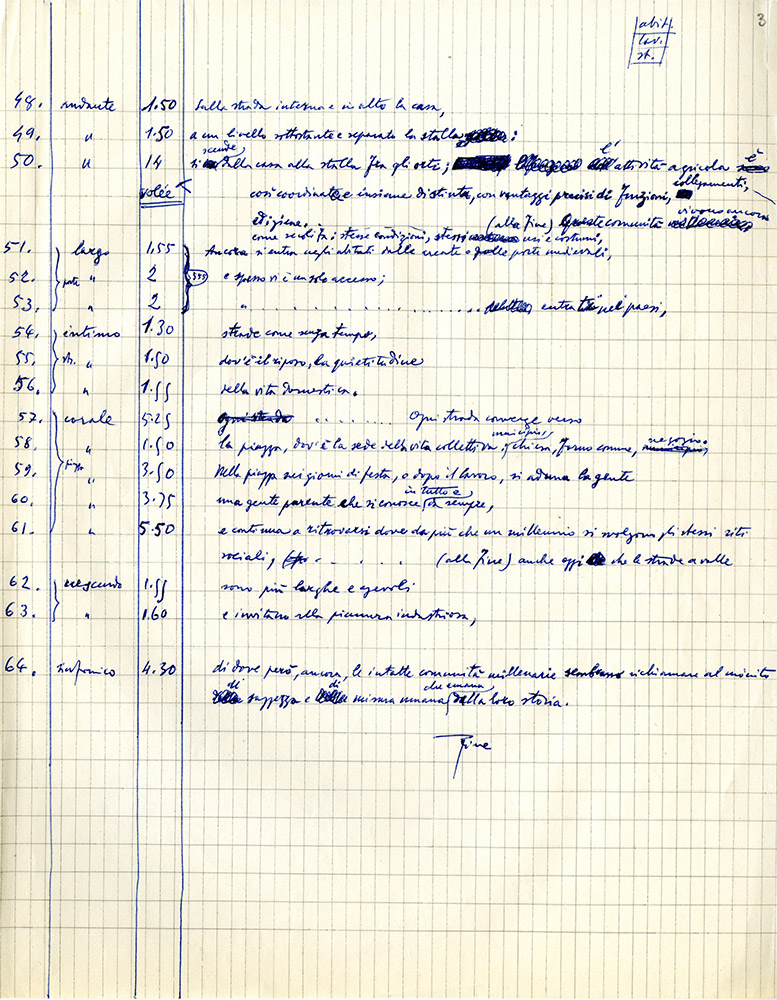 3
abit.
lav.
st.
48. andante 1.50 Sulla strada interna e in alto la casa,
49. " 1.50 a un livello sottostante e separato la stalla:
50. " 14 si scende dalla casa alla stalla fra gli orti; l'attività agricola è
volée così coordinata e insieme distinta, con vantaggi precisi di funzioni, collegamenti,
igiene. (alla fine) Queste comunità vivono ancora
come secoli fa: stesse condizioni, stessi usi e costumi,
51. largo 1.55 Ancora si entra negli abitati dalle porte medievali,
52. porte " 2 e spesso vi è un solo accesso;
53. " 2 " . . . . . . . . . . . . . . . . . entrati nei paesi,
54. intimo 1.30 strade come senza tempo,
55. str. " 1.50 dov'è il riposo, la quietitudine
56. " 1.55 della vita domestica.
57. corale 5.25 Ogni strada . . . . . . . Ogni strada converge verso
58. " 1.50 la piazza, dov'è la sede della vita collettiva: municipio, chiesa, forno comune, negozio.
59. piazza " 3.50 Nella piazza nei giorni di festa, o dopo il lavoro, si aduna la gente
60. " 3.75 una gente parente che si conosce in tutto e da sempre,
61. " 5.50 e continua a ritrovarsi dove da più che un millennio si svolgono gli stessi riti
sociali, . . . . . (alla fine) anche oggi che le strade a valle
62. crescendo 1.55 sono più larghe e agevoli
63. " 1.60 e invitano alla pianura industriosa,
64. sinfonico 4.30 di dove però, ancora, le intatte comunità millenarie sembrano richiamare al monito
di saggezza e di misura umana che emana dalla loro storia.
Fine